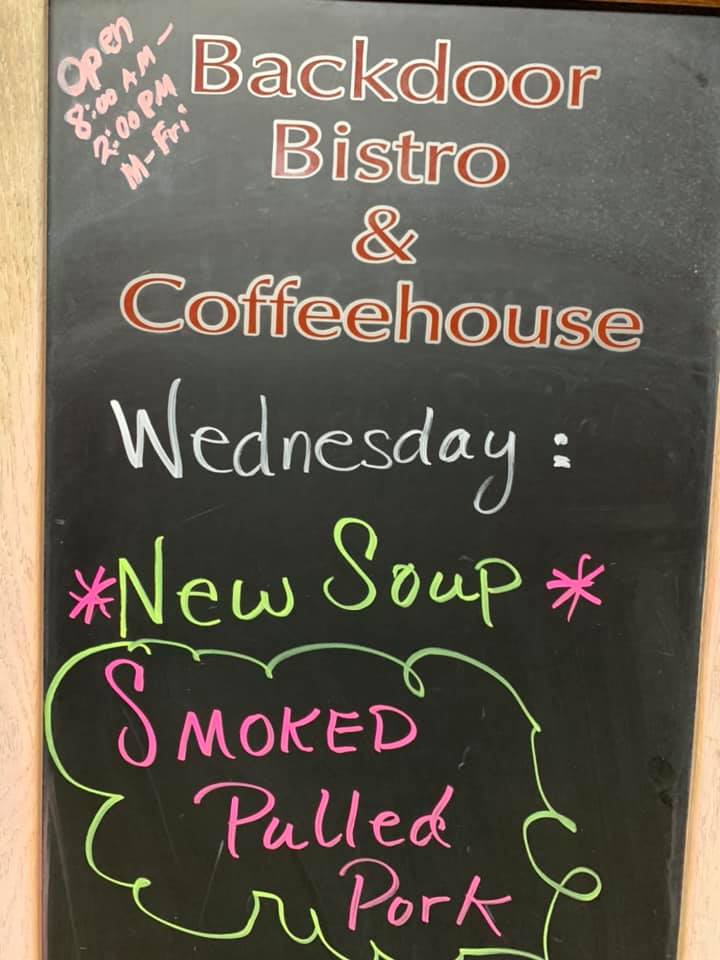 Open
8:00 AM -
2:00 PM
M-Fri
Backdoor
Bistro
&
Coffeehouse
Wednesday:
*New Soup*
SMOKED
Pulled
Pork